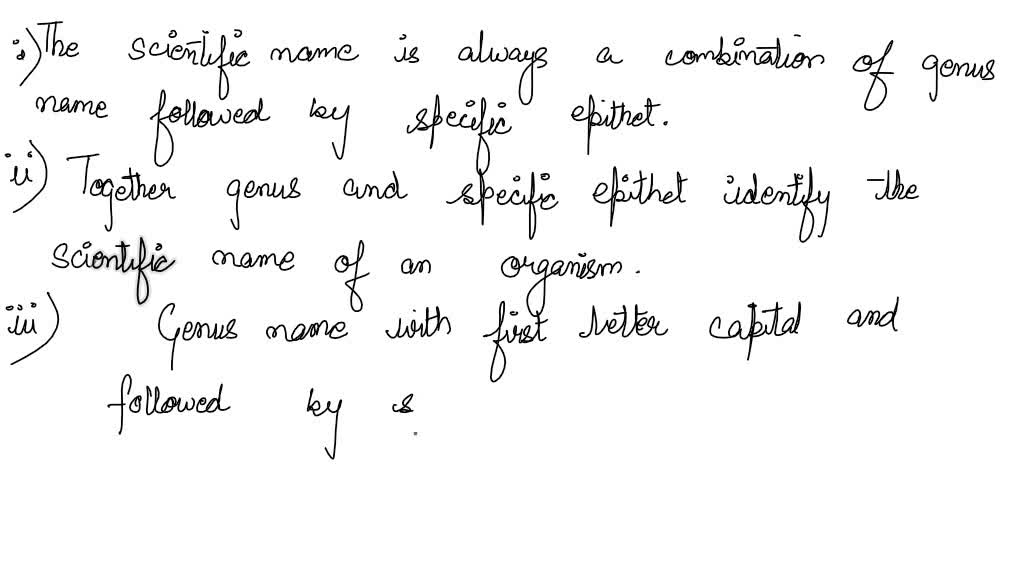 i) The scientific name is always a combination of genus
name followed by specific epithet.
ii) Together genus and specific epithet identify the
scientific name of an organism.
iii) Genus name with first letter capital and
followed by s